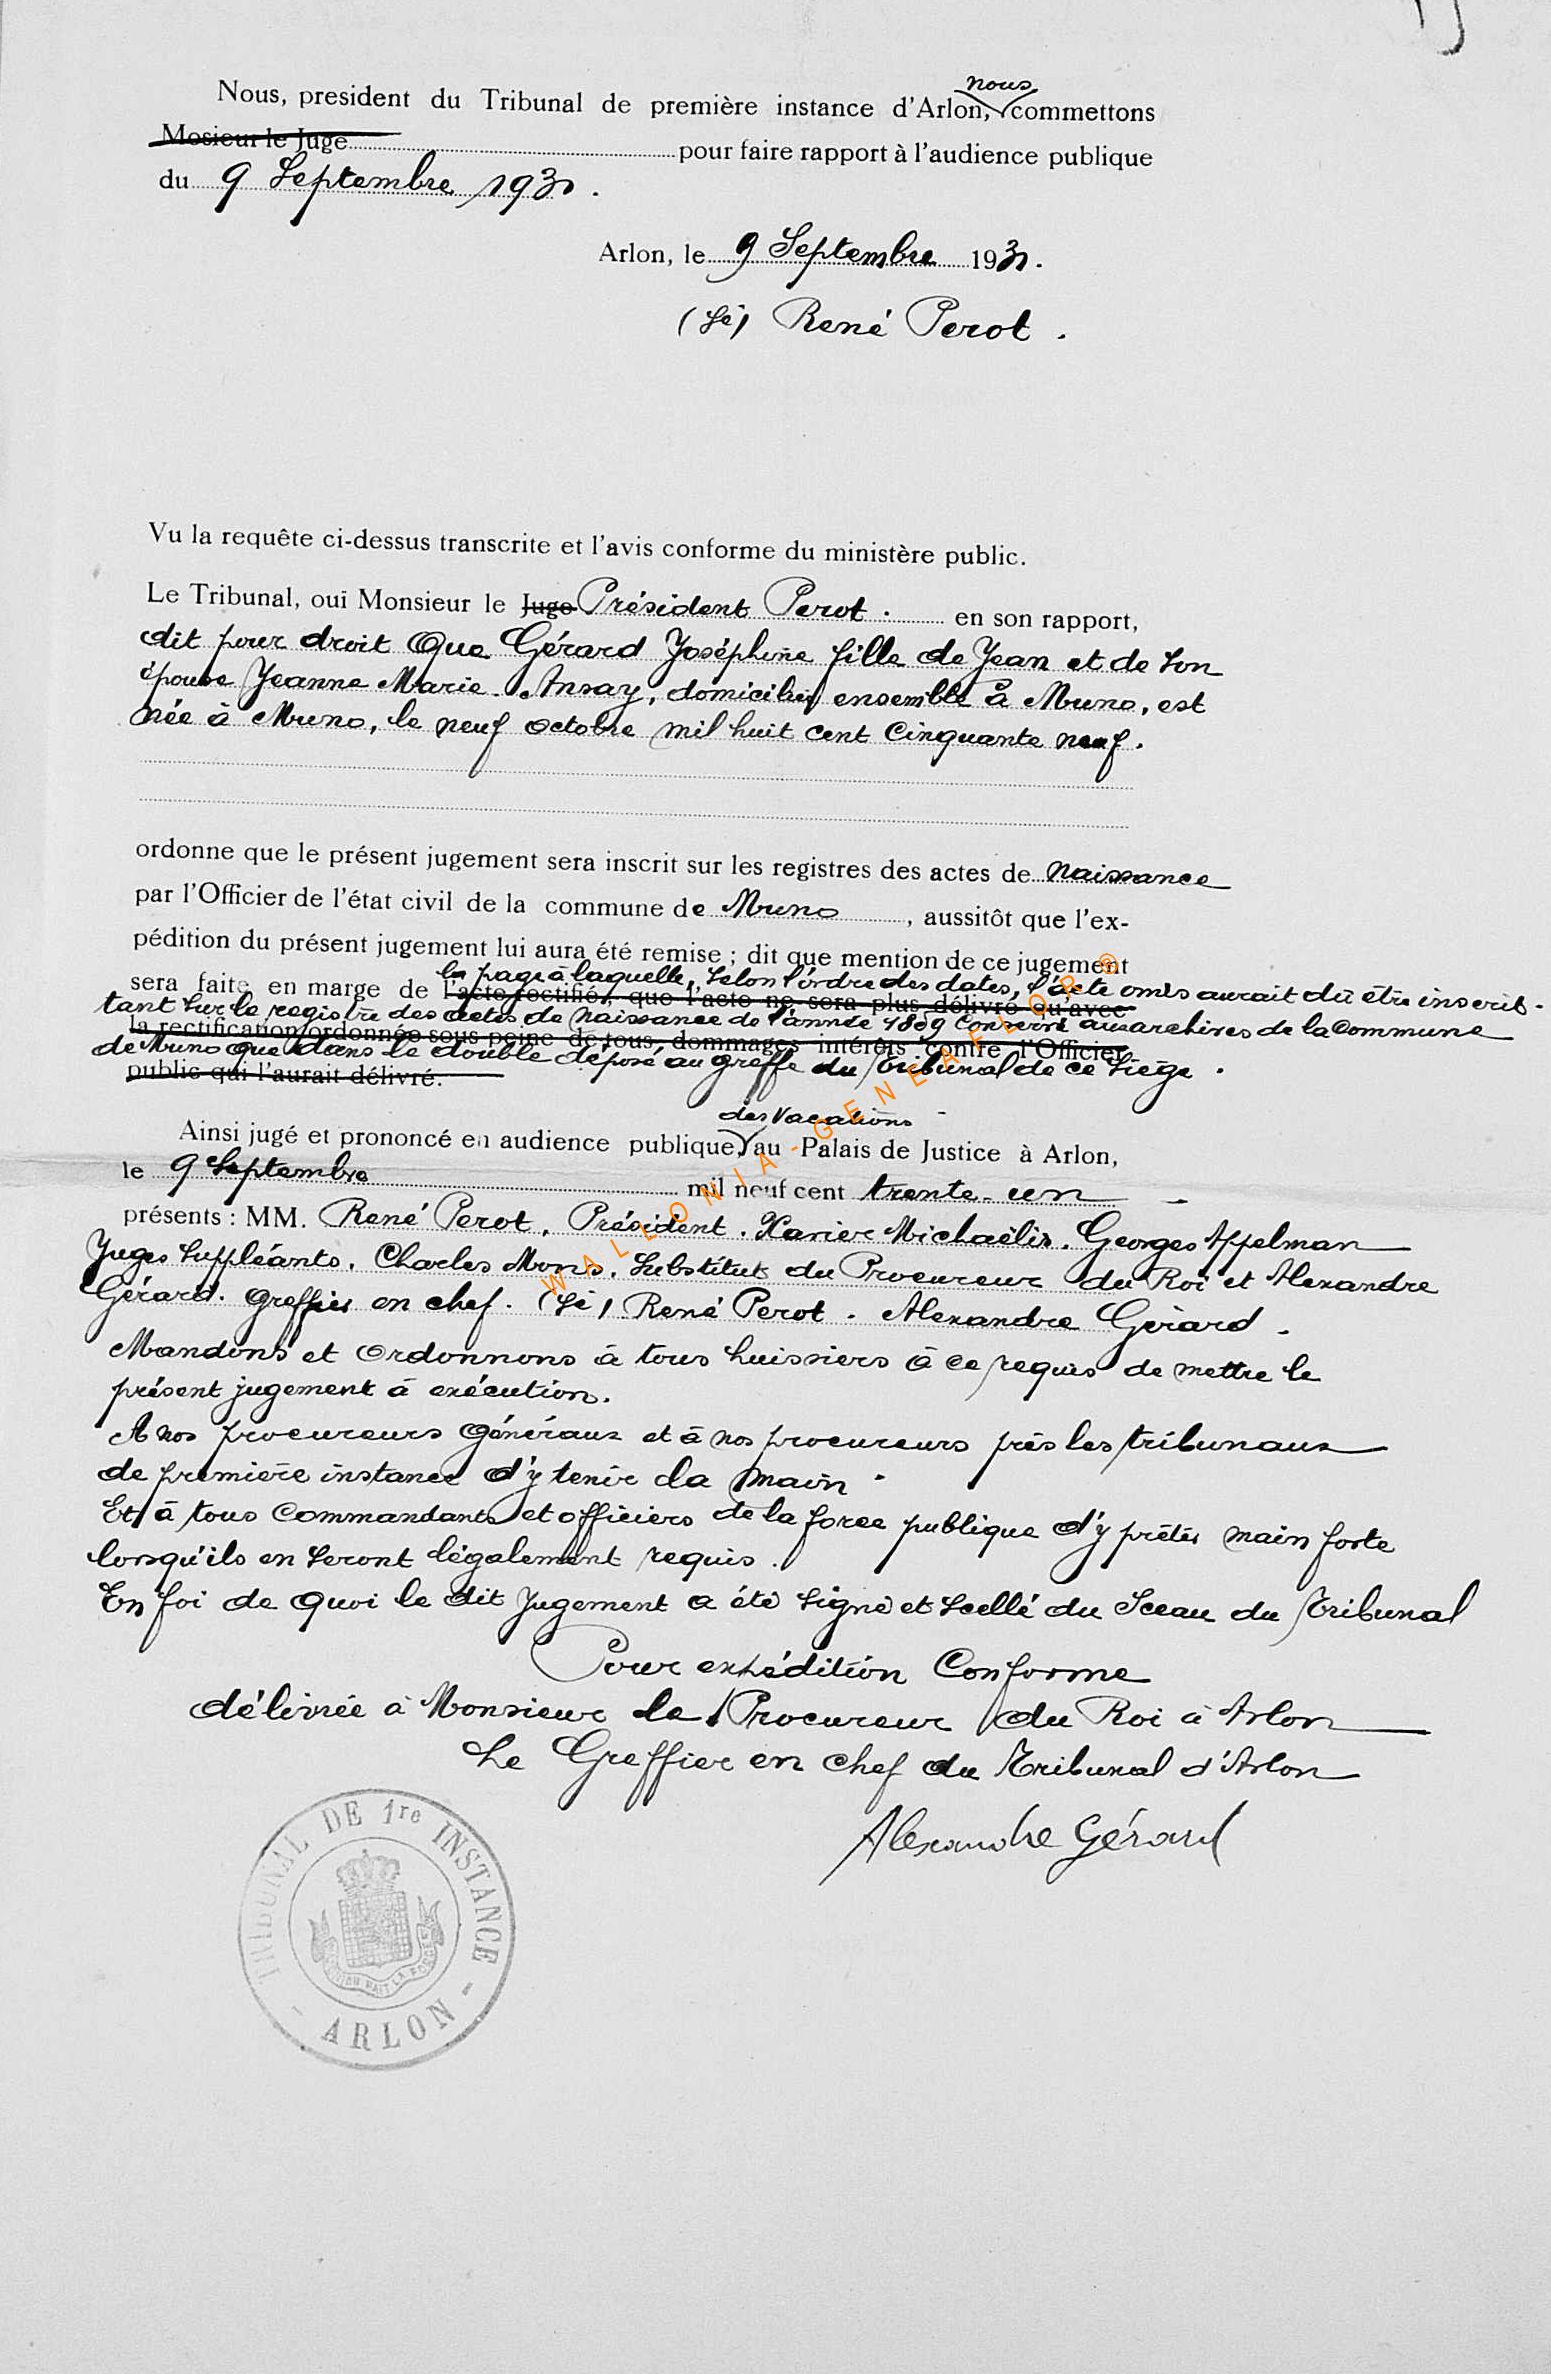 Nous, president du Tribunal de première instance d'Arlon, nous commettons
Mosieur le Juge pour faire rapport à l'audience publique
du 9 Septembre 1931.
Arlon, le 9 Septembre 1931.
(Sé) René Perot.
Vu la requête ci-dessus transcrite et l'avis conforme du ministère public.
Le Tribunal, ouï Monsieur le Juge Président Perot. en son rapport,
dit pour droit Que Gérard Joséphine fille de Jean et de Son
épouse Jeanne Marie Ansay, domiciliés ensemble à Muno, est
née à Muno, le neuf octobre mil huit cent Cinquante neuf.
ordonne que le présent jugement sera inscrit sur les registres des actes de naissance
par l'Officier de l'état civil de la commune de Muno, aussitôt que l'ex-
pédition du présent jugement lui aura été remise ; dit que mention de ce jugement
la page à laquelle, Selon l'ordre des dates, l'acte omis aurait dû être inscrit.
sera faite en marge de l'acte rectifié, que l'acte ne sera plus délivré qu'avec
tant Sur le registre des actes de Naissance de l'année 1859 Conservé aux archives de la Commune
la rectification ordonnée sous peine de tous dommages intérêts contre l'Officier
de Muno que dans le double déposé au greffe du Tribunal de ce Siège.
public qui l'aurait délivré.
des Vacations
Ainsi jugé et prononcé en audience publique, au Palais de Justice à Arlon,
le 9 Septembre mil neuf cent trente-un
présents : MM. René Perot, Président. Xavier Michaëlis. Georges Appelman
Juges Suppléants. Charles Mons. Substitut du Procureur du Roi et Alexandre
Gérard. Greffier en chef. (Sé) René Perot. Alexandre Gérard.
Mandons et Ordonnons à tous huissiers à ce requis de mettre le
présent jugement à exécution.
A nos procureurs Généraux et à nos procureurs près les tribunaux
de première instance d'y tenir la main
Et à tous Commandants et officiers de la force publique d'y prêter main forte
lorsqu'ils en seront légalement requis.
En foi de Quoi le dit Jugement a été Signé et Scellé du Sceau du Tribunal
Pour expédition Conforme
délivrée à Monsieur le Procureur du Roi à Arlon
Le Greffier en Chef du Tribunal d'Arlon
Alexandre Gérard
TRIBUNAL DE 1re INSTANCE
- ARLON -
WALLONIA-GENEAFLOR®